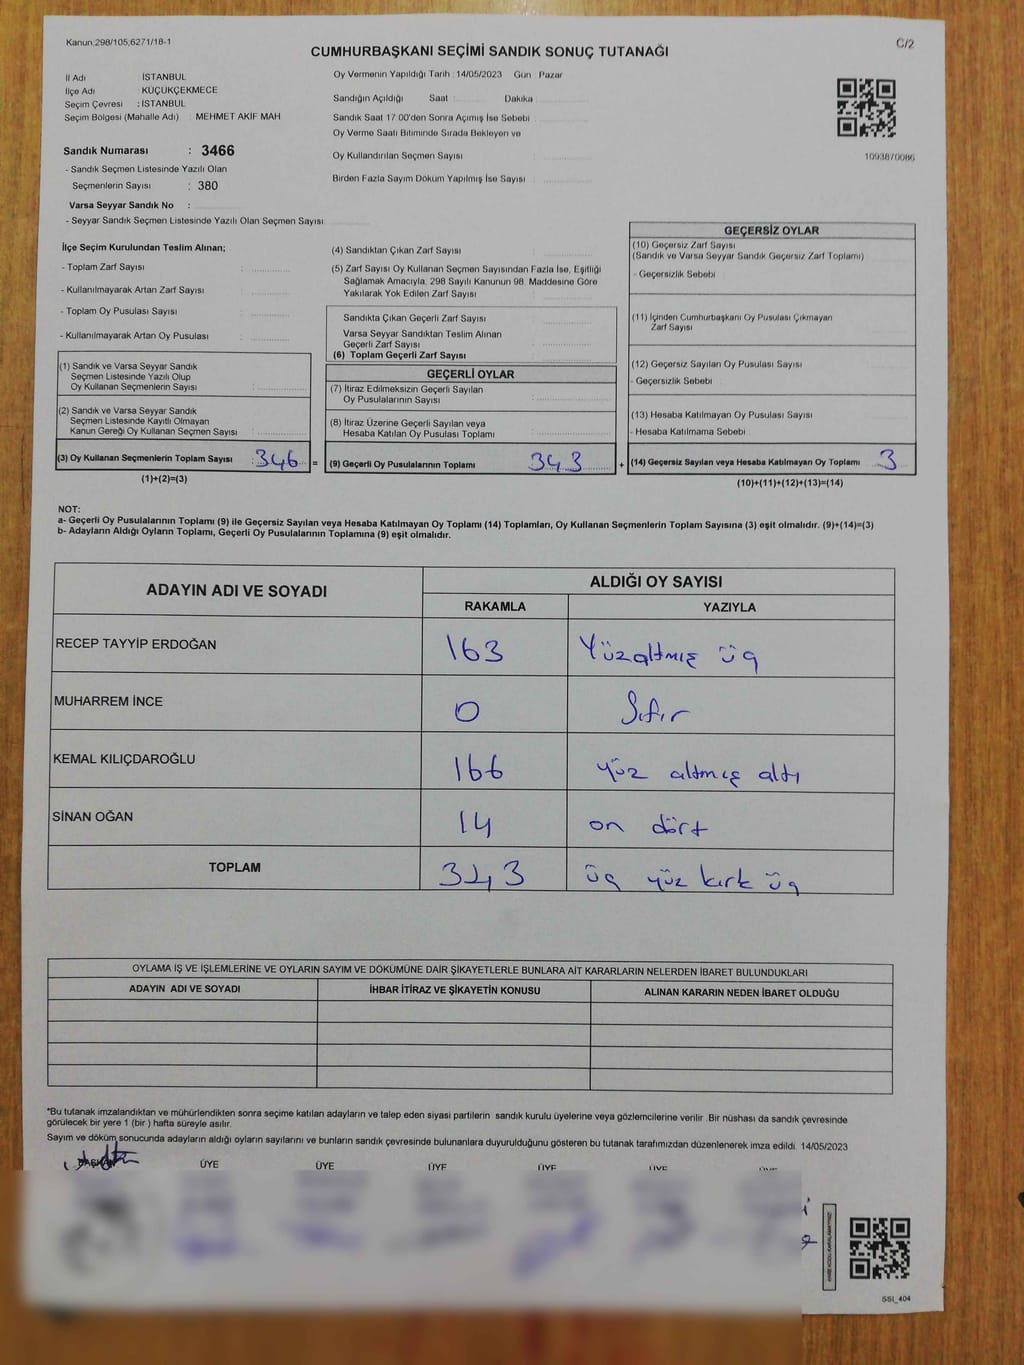 Kanun:298/105,6271/18-1
C/2
CUMHURBAŞKANI SEÇİMİ SANDIK SONUÇ TUTANAĞI
İl Adı İSTANBUL
İlçe Adı KÜÇÜKÇEKMECE
Seçim Çevresi : İSTANBUL
Seçim Bölgesi (Mahalle Adı) : MEHMET AKİF MAH
Sandık Numarası : 3466
- Sandık Seçmen Listesinde Yazılı Olan
Seçmenlerin Sayısı : 380
Varsa Seyyar Sandık No :
- Seyyar Sandık Seçmen Listesinde Yazılı Olan Seçmen Sayısı
Oy Vermenin Yapıldığı Tarih : 14/05/2023 Gün : Pazar
Sandığın Açıldığı Saat Dakika
Sandık Saat 17.00'den Sonra Açılmış İse Sebebi :
Oy Verme Saati Bitiminde Sırada Bekleyen ve
Oy Kullandırılan Seçmen Sayısı
Birden Fazla Sayım Döküm Yapılmış İse Sayısı
1093870086
İlçe Seçim Kurulundan Teslim Alınan;
- Toplam Zarf Sayısı :
- Kullanılmayarak Artan Zarf Sayısı
- Toplam Oy Pusulası Sayısı :
- Kullanılmayarak Artan Oy Pusulası
(1) Sandık ve Varsa Seyyar Sandık
Seçmen Listesinde Yazılı Olup
Oy Kullanan Seçmenlerin Sayısı :
(2) Sandık ve Varsa Seyyar Sandık
Seçmen Listesinde Kayıtlı Olmayan
Kanun Gereği Oy Kullanan Seçmen Sayısı :
(3) Oy Kullanan Seçmenlerin Toplam Sayısı : 346 =
(1)+(2)=(3)
(4) Sandıktan Çıkan Zarf Sayısı :
(5) Zarf Sayısı Oy Kullanan Seçmen Sayısından Fazla İse, Eşitliği
Sağlamak Amacıyla, 298 Sayılı Kanunun 98. Maddesine Göre
Yakılarak Yok Edilen Zarf Sayısı :
Sandıkta Çıkan Geçerli Zarf Sayısı
Varsa Seyyar Sandıktan Teslim Alınan
Geçerli Zarf Sayısı
(6) Toplam Geçerli Zarf Sayısı
GEÇERLİ OYLAR
(7) İtiraz Edilmeksizin Geçerli Sayılan
Oy Pusulalarının Sayısı :
(8) İtiraz Üzerine Geçerli Sayılan veya
Hesaba Katılan Oy Pusulası Toplamı
(9) Geçerli Oy Pusulalarının Toplamı 343 +
GEÇERSİZ OYLAR
(10) Geçersiz Zarf Sayısı
(Sandık ve Varsa Seyyar Sandık Geçersiz Zarf Toplamı)
- Geçersizlik Sebebi
(11) İçinden Cumhurbaşkanı Oy Pusulası Çıkmayan
Zarf Sayısı
(12) Geçersiz Sayılan Oy Pusulası Sayısı
- Geçersizlik Sebebi
(13) Hesaba Katılmayan Oy Pusulası Sayısı
- Hesaba Katılmama Sebebi
(14) Geçersiz Sayılan veya Hesaba Katılmayan Oy Toplamı 3
(10)+(11)+(12)+(13)=(14)
NOT:
a- Geçerli Oy Pusulalarının Toplamı (9) ile Geçersiz Sayılan veya Hesaba Katılmayan Oy Toplamı (14) Toplamları, Oy Kullanan Seçmenlerin Toplam Sayısına (3) eşit olmalıdır. (9)+(14)=(3)
b- Adayların Aldığı Oyların Toplamı, Geçerli Oy Pusulalarının Toplamına (9) eşit olmalıdır.
ADAYIN ADI VE SOYADI ALDIĞI OY SAYISI
RAKAMLA YAZIYLA
RECEP TAYYİP ERDOĞAN 163 Yüzaltmış üç
MUHARREM İNCE 0 Sıfır
KEMAL KILIÇDAROĞLU 166 yüz altmış altı
SİNAN OĞAN 14 on dört
TOPLAM 343 üç yüz kırk üç
OYLAMA İŞ VE İŞLEMLERİNE VE OYLARIN SAYIM VE DÖKÜMÜNE DAİR ŞİKAYETLERLE BUNLARA AİT KARARLARIN NELERDEN İBARET BULUNDUKLARI
ADAYIN ADI VE SOYADI İHBAR İTİRAZ VE ŞİKAYETİN KONUSU ALINAN KARARIN NEDEN İBARET OLDUĞU
*Bu tutanak imzalandıktan ve mühürlendikten sonra seçime katılan adayların ve talep eden siyasi partilerin sandık kurulu üyelerine veya gözlemcilerine verilir. Bir nüshası da sandık çevresinde
görülecek bir yere 1 (bir ) hafta süreyle asılır.
Sayım ve döküm sonucunda adayların aldığı oyların sayılarını ve bunların sandık çevresinde bulunanlara duyurulduğunu gösteren bu tutanak tarafımızdan düzenlenerek imza edildi. 14/05/2023
BAŞKAN ÜYE ÜYE ÜYE ÜYE ÜYE ÜYE
SSI_404